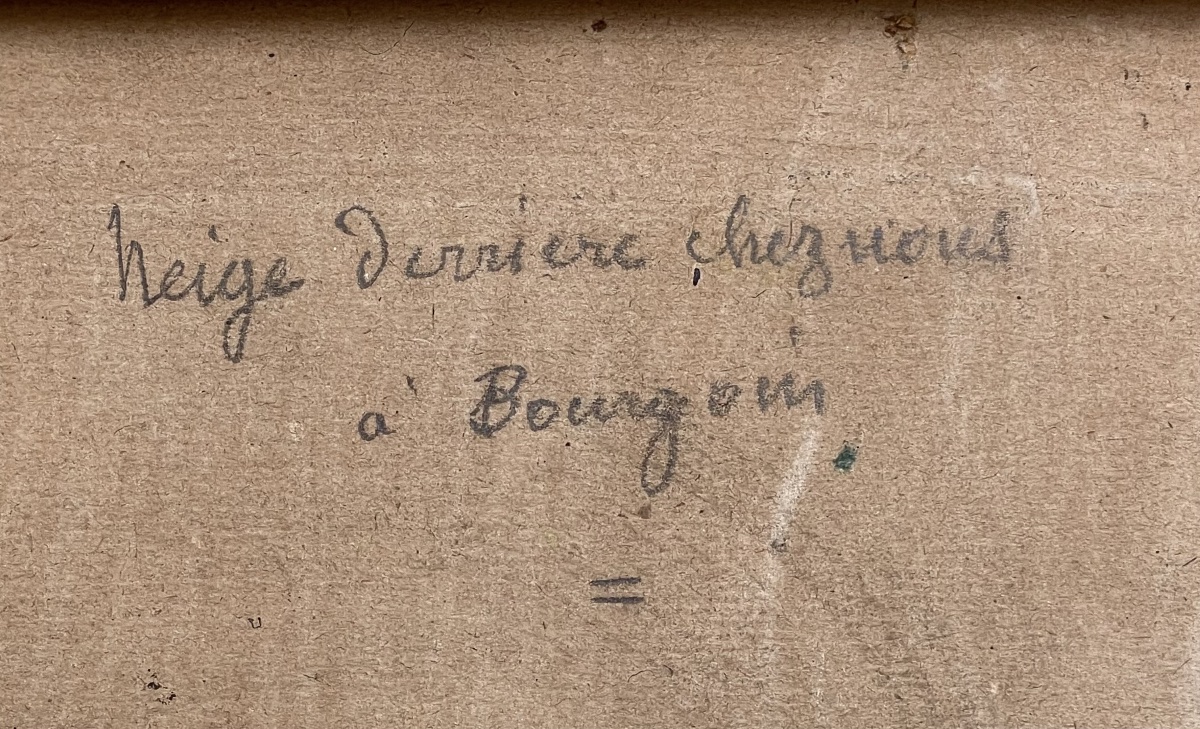 Neige derrière chez nous
à Bourgoin
=